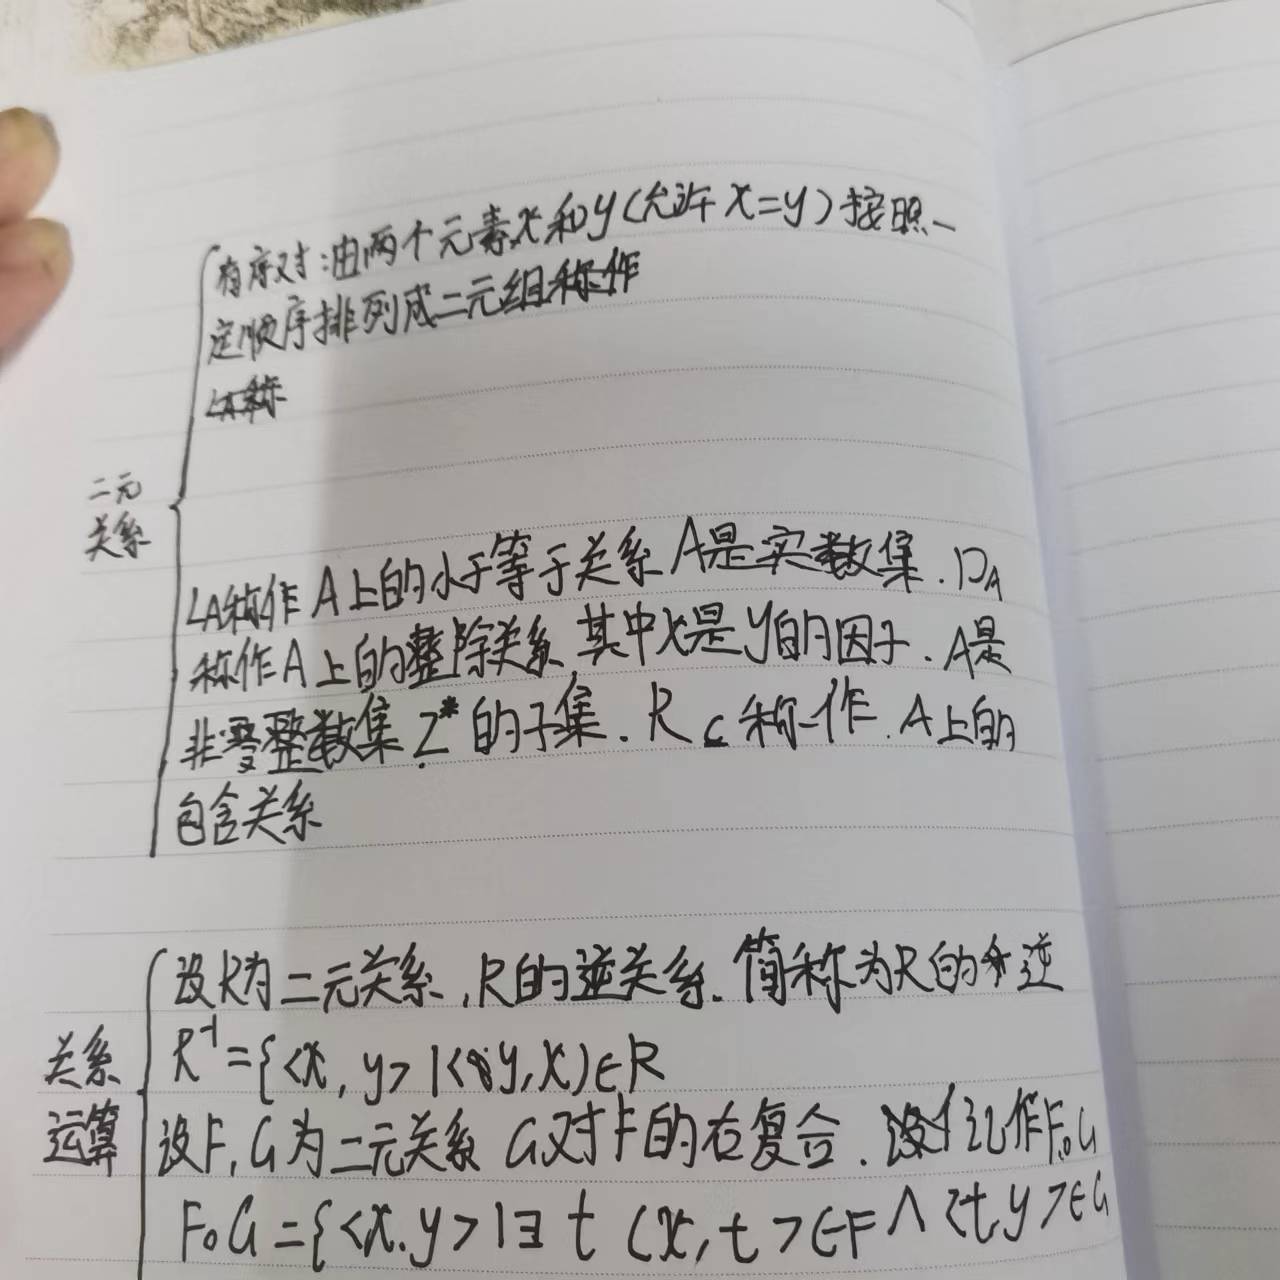 有序对:由两个元素x和y(允许x=y)按照一
定顺序排列成二元组称作
LA称
二元
关系
LA称作A上的小于等于关系 A是实数集.DA
称作A上的整除关系 其中x是y的因子.A是
非零整数集Z*的子集.R⊆称作.A上的
包含关系
设R为二元关系,R的逆关系.简称为R的逆
R⁻¹={<x,y>|<y,x)∈R
关系
运算
设F,G为二元关系 G对F的右复合.记作F∘G
F∘G={<x.y>|∃t(x,t>∈F∧<t,y>∈G